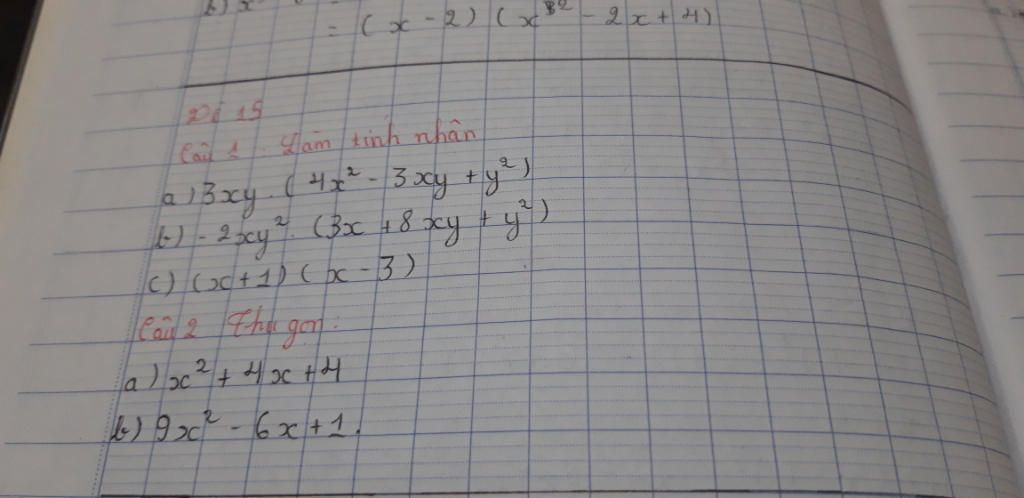 b) x
= (x - 2) (x² - 2x + 4)
Đề 15
Câu 1 . Làm tính nhân
a) 3xy . (4x² - 3xy + y²)
b) - 2xy² . (3x + 8xy + y²)
c) (x + 1) (x - 3)
Câu 2 Thu gọn :
a) x² + 4x + 4
b) 9x² - 6x + 1.